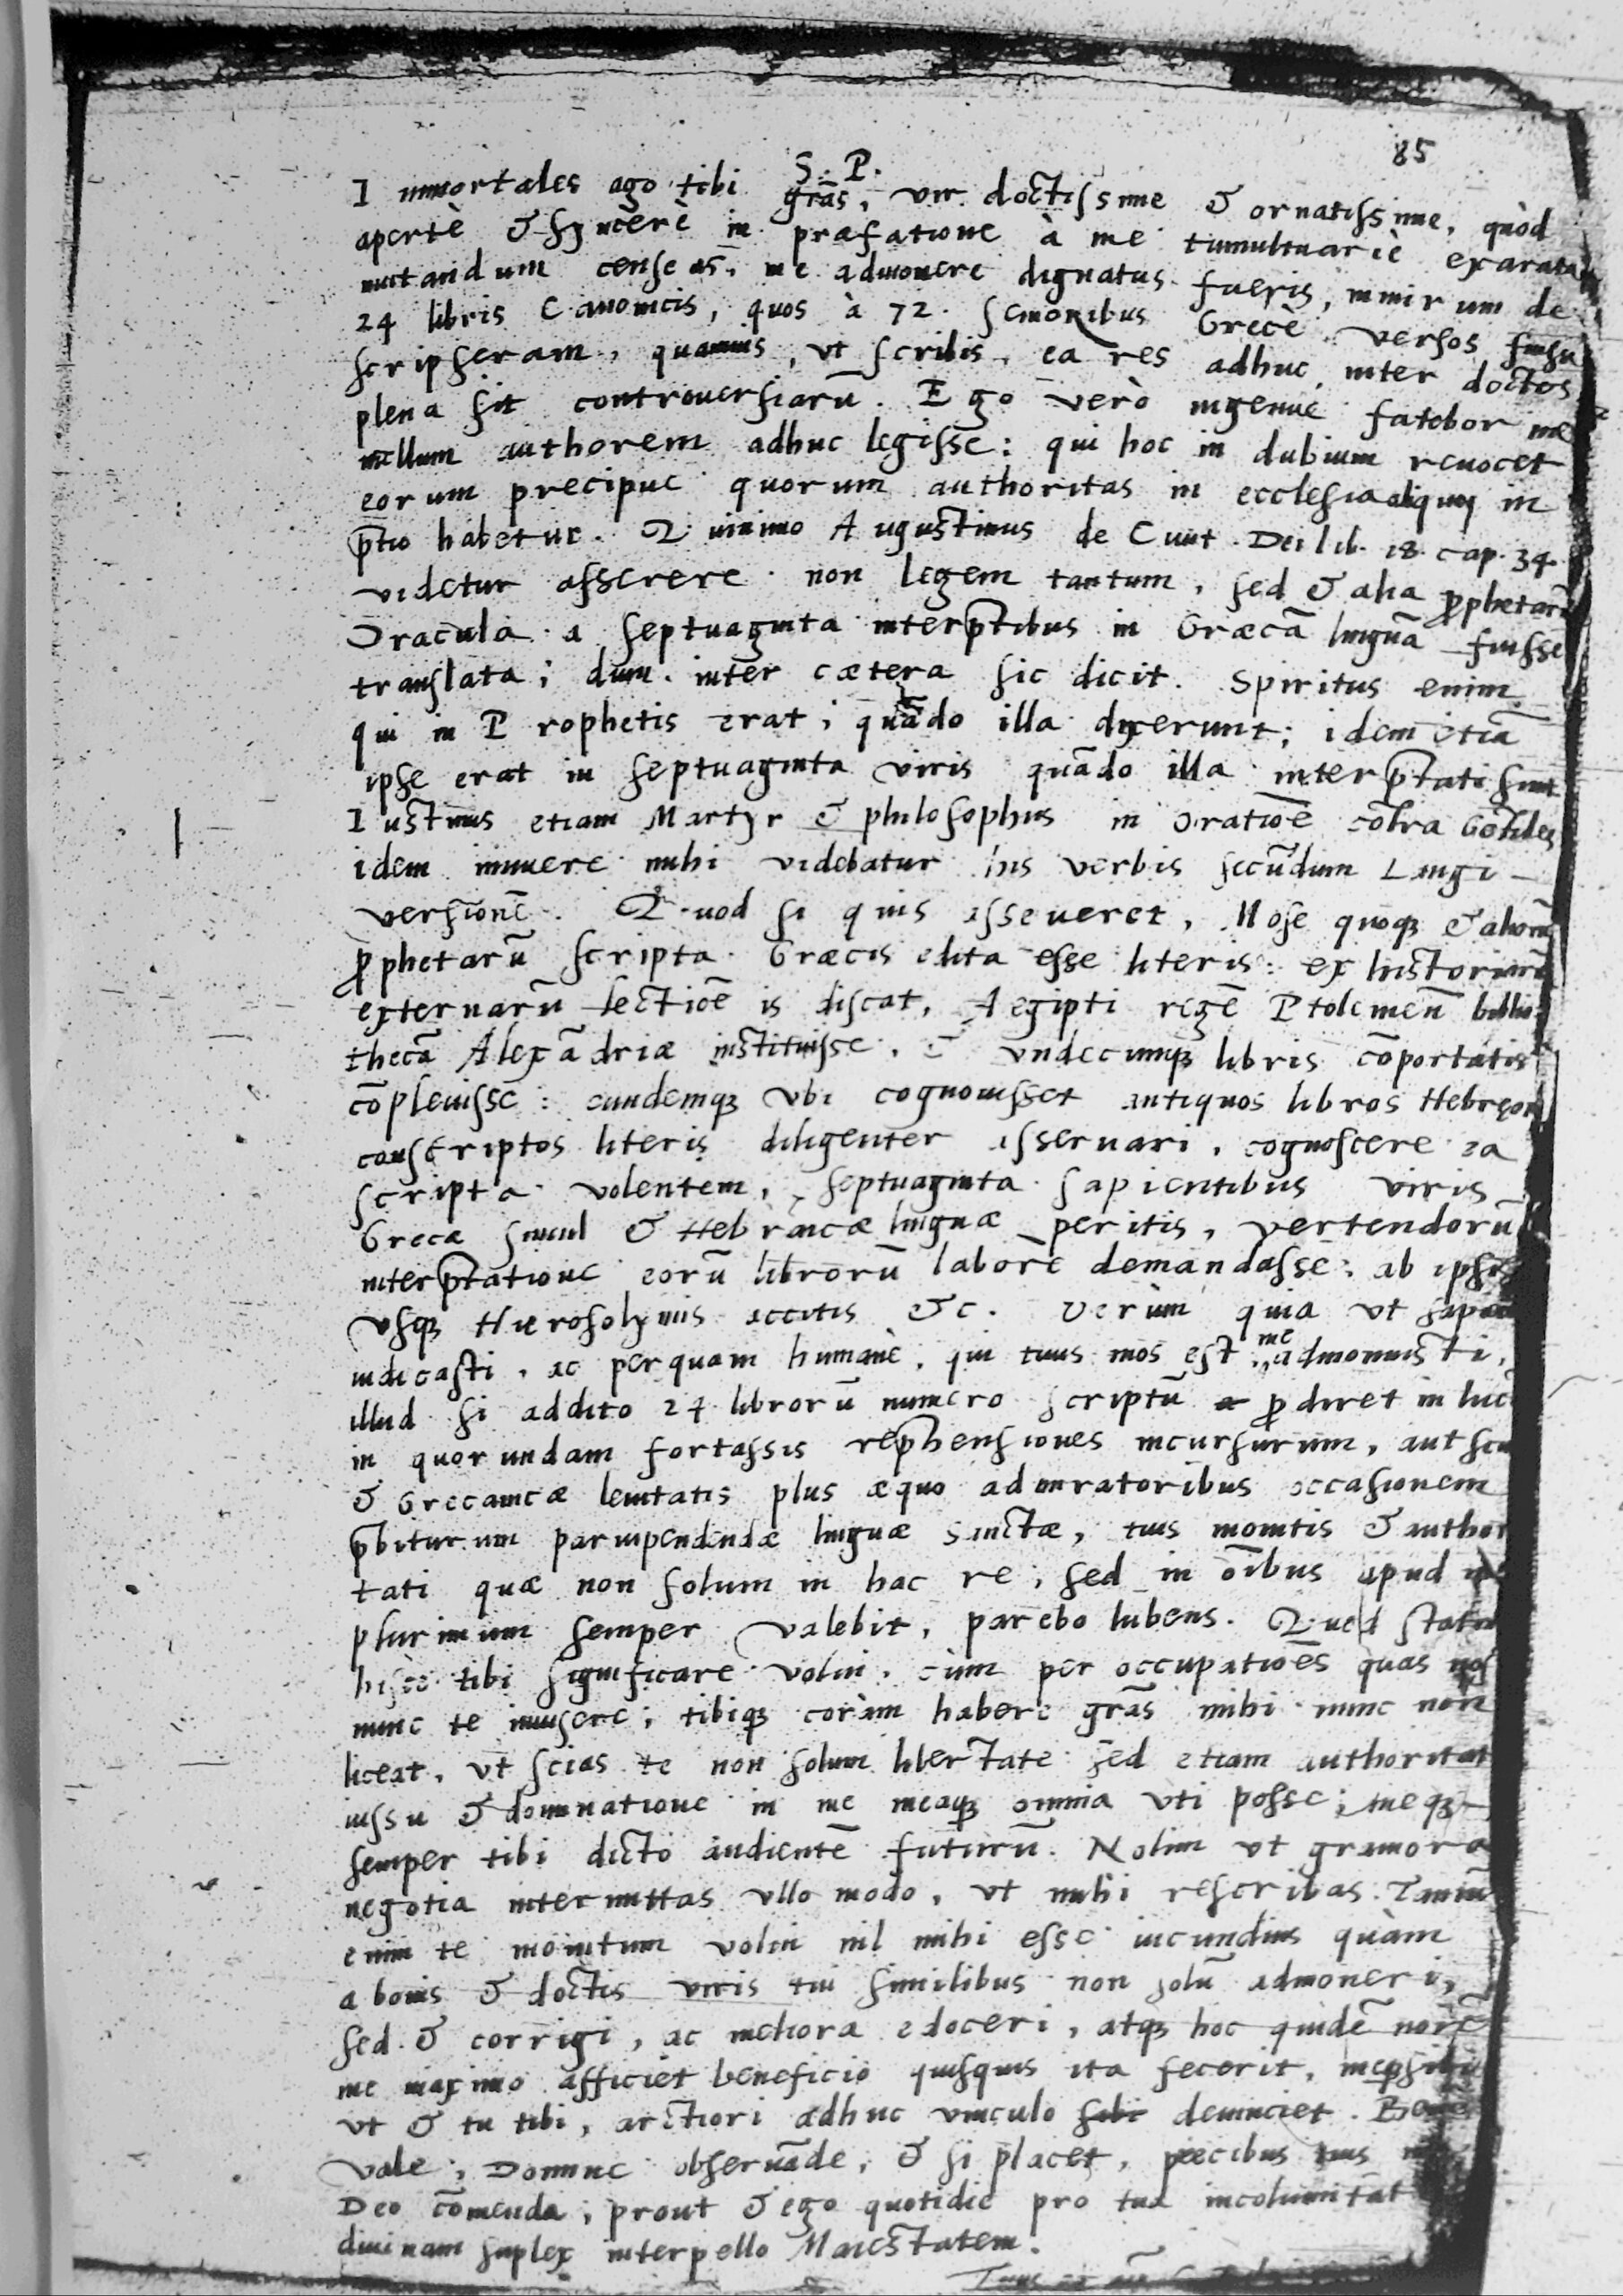 85
S. P.
Immortales ago tibi grãs, vir doctissime & ornatissime, quòd
apertè & syncerè in præfatione à me tumultuariè exarata
mutandum censeas, me admonere dignatus fueris, nimirum de
24 libris Canonicis, quos à 72. Senioribus Grecè versos fuisse
scripseram, quamuis, vt scribis, ea res adhuc inter doctos
plena sit controuersiarũ. Ego verò ingenue fatebor me
nullum authorem adhuc legisse: qui hoc in dubium reuocet
eorum precipue quorum authoritas in ecclesia aliquo in
p̃tio habetur. Quinimo Augustinus de Ciuit. Dei lib. 18. cap. 34.
videtur asserere non legem tantum, sed & alia ꝓphetarũ
Oracula a septuaginta interp̃tibus in Græcã linguã fuisse
translata; dum inter cætera sic dicit. Spiritus enim
qui in Prophetis erat; quãdo illa dixerunt; idem etiã
ipse erat in septuaginta viris quãdo illa interp̃tati sunt
Iustinus etiam Martyr & philosophus in oratiõe cõtra Gẽtiles
idem innuere mihi videbatur his verbis secũdum Langi
versionẽ. Quod si quis asseueret, Mose quoqꝫ & aliorũ
ꝓphetarũ scripta Græcis edita esse literis: ex historiarũ
externarũ lectiõe is discat, Aegipti regẽ Ptolemeũ biblio
thecã Alexãdriæ instituisse, & vndecunqꝫ libris cõportatis
cõpleuisse: eundemqꝫ vbi cognouisset antiquos libros Hebręorũ
conscriptos literis diligenter asseruari, cognoscere ea
scripta volentem, septuaginta sapientibus viris
Grecæ simul & Hebraicæ linguæ peritis, vertendorũ
interp̃tatione eorũ librorũ laborẽ demandasse, ab ipsis
vsqꝫ Hierosolymis accitis &c. Verùm quia vt
indicasti, ac perquam humanè, qui tuus mos est, me admonuisti,
illud si addito 24 librorũ numero scriptũ ꝓdiret in lucẽ
in quorundam fortassis rep̃hensiones incursurum, aut
& Grecanicæ leuitatis plus æquo admiratoribus occasionem
p̃biturum paruipendendæ linguæ sanctæ, tuis monitis & authori
tati quæ non solum in hac re, sed in õibus apud me
plurimum semper valebit, parebo lubens. Quod statim
hisce tibi significare volui, cùm per occupatiões quas nosti
nunc te inuisere; tibiqꝫ coràm habere grãs mihi nunc non
liceat, vt scias te non solum libertate sed etiam authoritate
iussu & dominatione in me meaqꝫ omnia vti posse; meqꝫ
semper tibi dicto audientẽ futurũ. Nolim vt grauiora
negotia intermittas vllo modo, vt mihi rescribas. Tantũ
enim te monitum volui nil mihi esse iucundius quàm
a bonis & doctis viris tui similibus non solũ admoneri,
sed & corrigi, ac meliora edoceri, atqꝫ hoc quidẽ norĩ
me maximo afficiet beneficio quisquis ita fecerit,
vt & tu tibi, arctiori adhuc vinculo deuinciet. Bene
vale, Domine obseruãde, & si placet, precibus tuis me
Deo cõmenda, prout & ego quotidie pro tua incolumitate
diuinam suplex interpello Maiestatem.